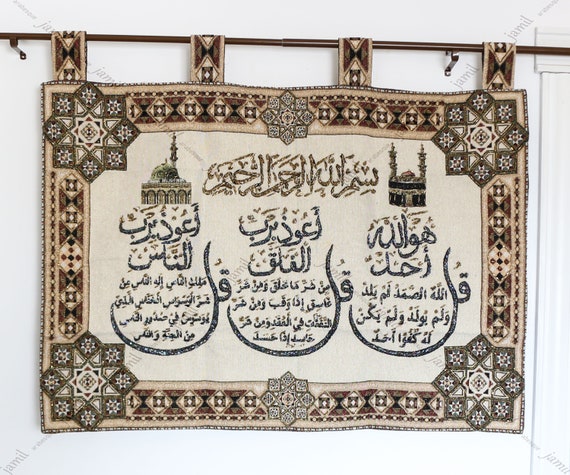 بسم الله الرحمن الرحيم
قل هو الله
أحد
الله الصمد لم يلد
ولم يولد ولم يكن
له كفوا أحد
قل أعوذ برب
الفلق
من شر ما خلق ومن شر
غاسق إذا وقب ومن شر
النفثت في العقد ومن شر
حاسد إذا حسد
قل أعوذ برب
الناس
ملك الناس إله الناس من
شر الوسواس الخناس الذي
يوسوس في صدور الناس
من الجنة والناس
jamil